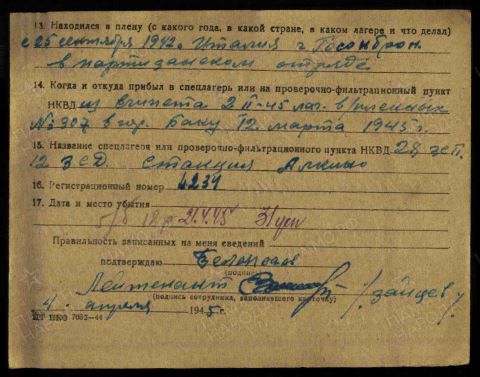 13. Находился в плену (с какого года, в какой стране, в каком лагере и что делал)
с 25 сентября 1942г Италия г.
в партизанском отряде.
14. Когда и откуда прибыл в спецлагерь или на проверочно-фильтрационный пункт
НКВД из Египета 2 II-45 лаг. в/пленных
№ 307 в гор. Баку 12. марта 1945 г.
15. Название спецлагеря или проверочно-фильтрационного пункта НКВД 28 зсп.
12 зсд. станция Алкино
16. Регистрационный номер 4234
17. Дата и место убытия
21.4.45
Правильность записанных на меня сведений
подтверждаю
(подпись)
Лейтенант /Зайцев/
(подпись сотрудника, заполнявшего карточку)
4. апреля 1945 г.
ЦТ НКО 7082—44